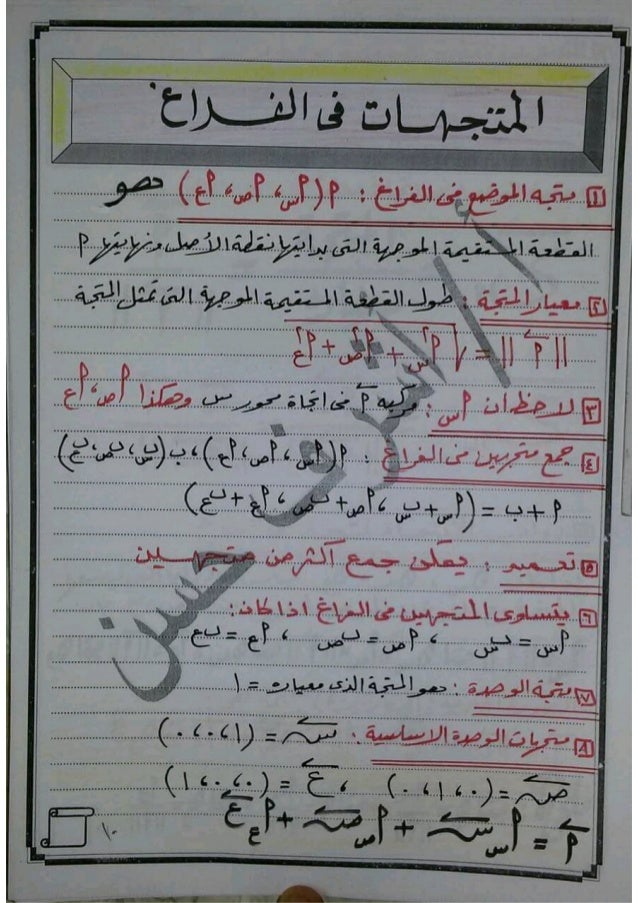 المتجهات فى الفراغ
١ متجه الموضع فى الفراغ : م (مس ، مص ، مع) هو
القطعة المستقيمة الموجهة التى بدايتها نقطة الأصل ونهايتها م
٢ معيار المتجة : طول القطعة المستقيمة الموجهة التى تمثل المتجة
||م|| = √(م²س + م²ص + م²ع)
٣ لاحظ أن مس : مركبه م فى اتجاة محور س وهكذا مص ، مع
٤ جمع متجهين فى الفراغ : م (مس ، مص ، مع) ، ب (بس ، بص ، بع)
م + ب = (مس + بس ، مص + بص ، مع + بع)
٥ تعميم : يمكن جمع أكثر من متجهين
٦ يتساوى المتجهين فى الفراغ اذا كان :
مس = بس ، مص = بص ، مع = بع
٧ متجة الوحدة : هو المتجة الذى معياره = ١
٨ متجهات الوحدة الاساسية : س = (١ ، ٠ ، ٠)
ص = (٠ ، ١ ، ٠) ، ع = (٠ ، ٠ ، ١)
م = مس س + مص ص + مع ع
١٠
أ / أشرف حسن